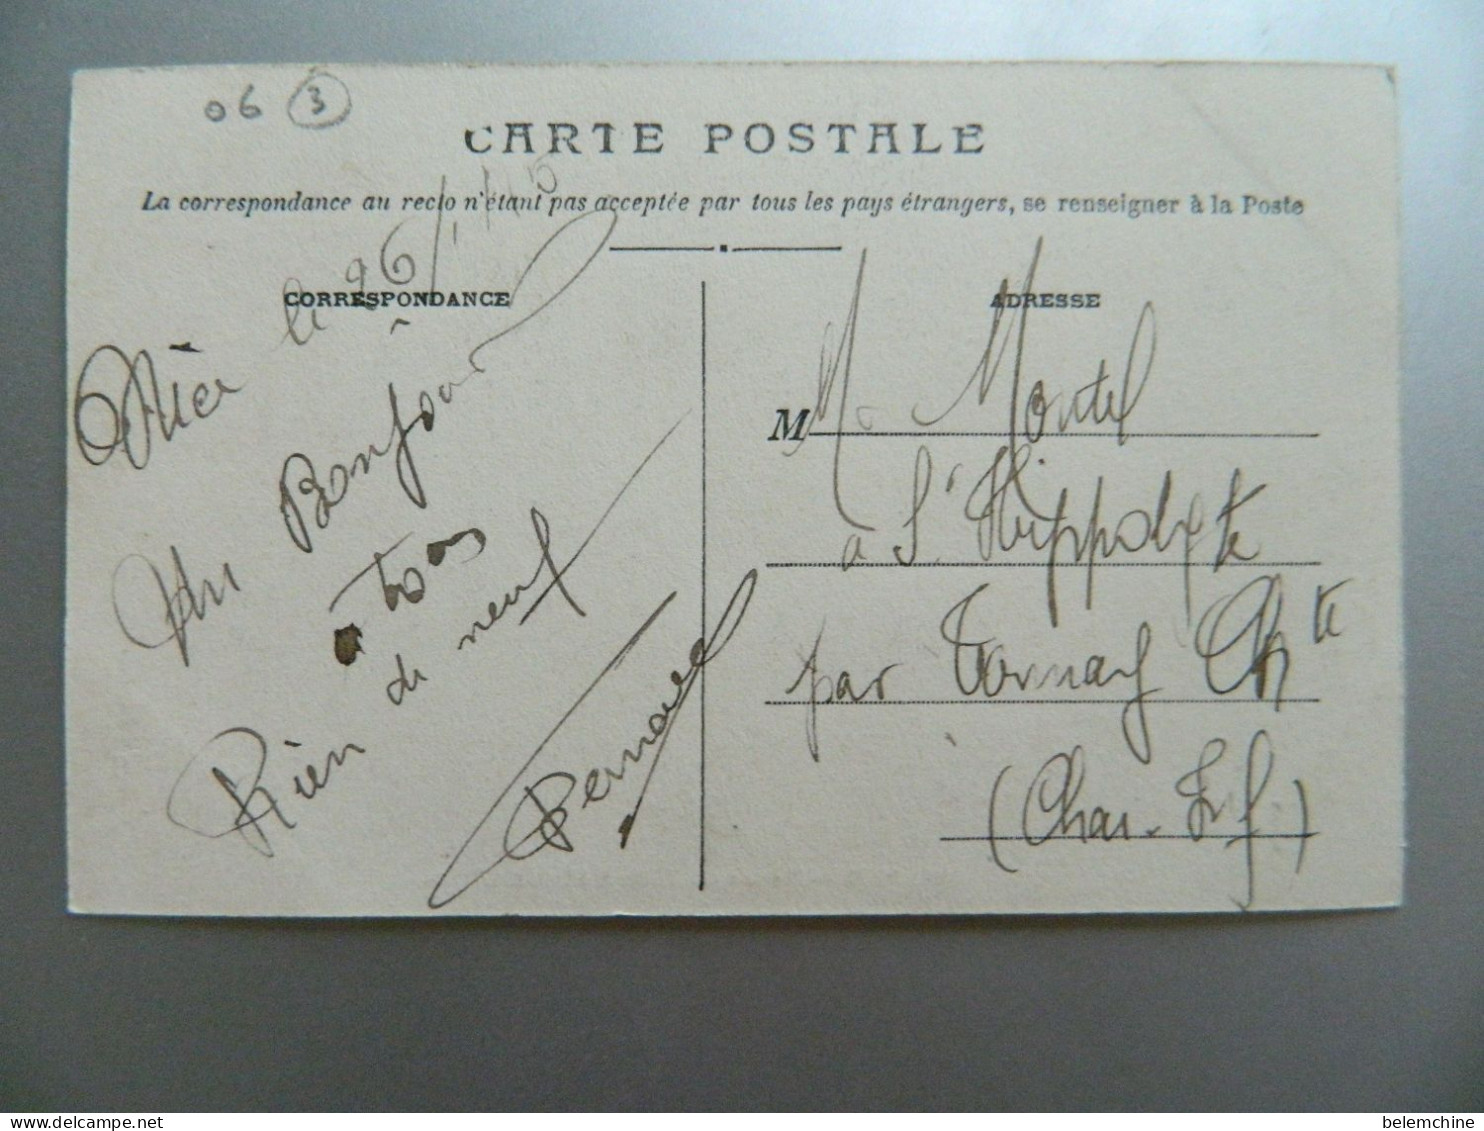 06 3
CARTE POSTALE
La correspondance au recto n'étant pas acceptée par tous les pays étrangers, se renseigner à la Poste
CORRESPONDANCE
Nice le 26/1/10
Un Bonjour
a tous
Rien de neuf
Bernard
ADRESSE
M M. Montel
à St Hippolyte
par Tonnay Chte
(Char. Inf)
belemchine